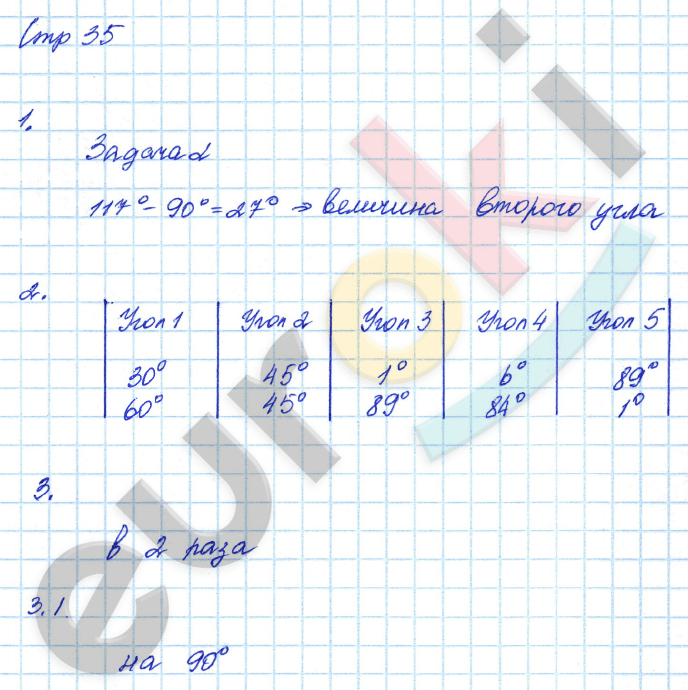 Стр 35
1.
Задача 2
117° - 90° = 27° ⇒ величина второго угла
2.
Угол 1 Угол 2 Угол 3 Угол 4 Угол 5
30° 45° 1° 6° 89°
60° 45° 89° 84° 1°
3.
в 2 раза
3.1.
на 90°
euroki